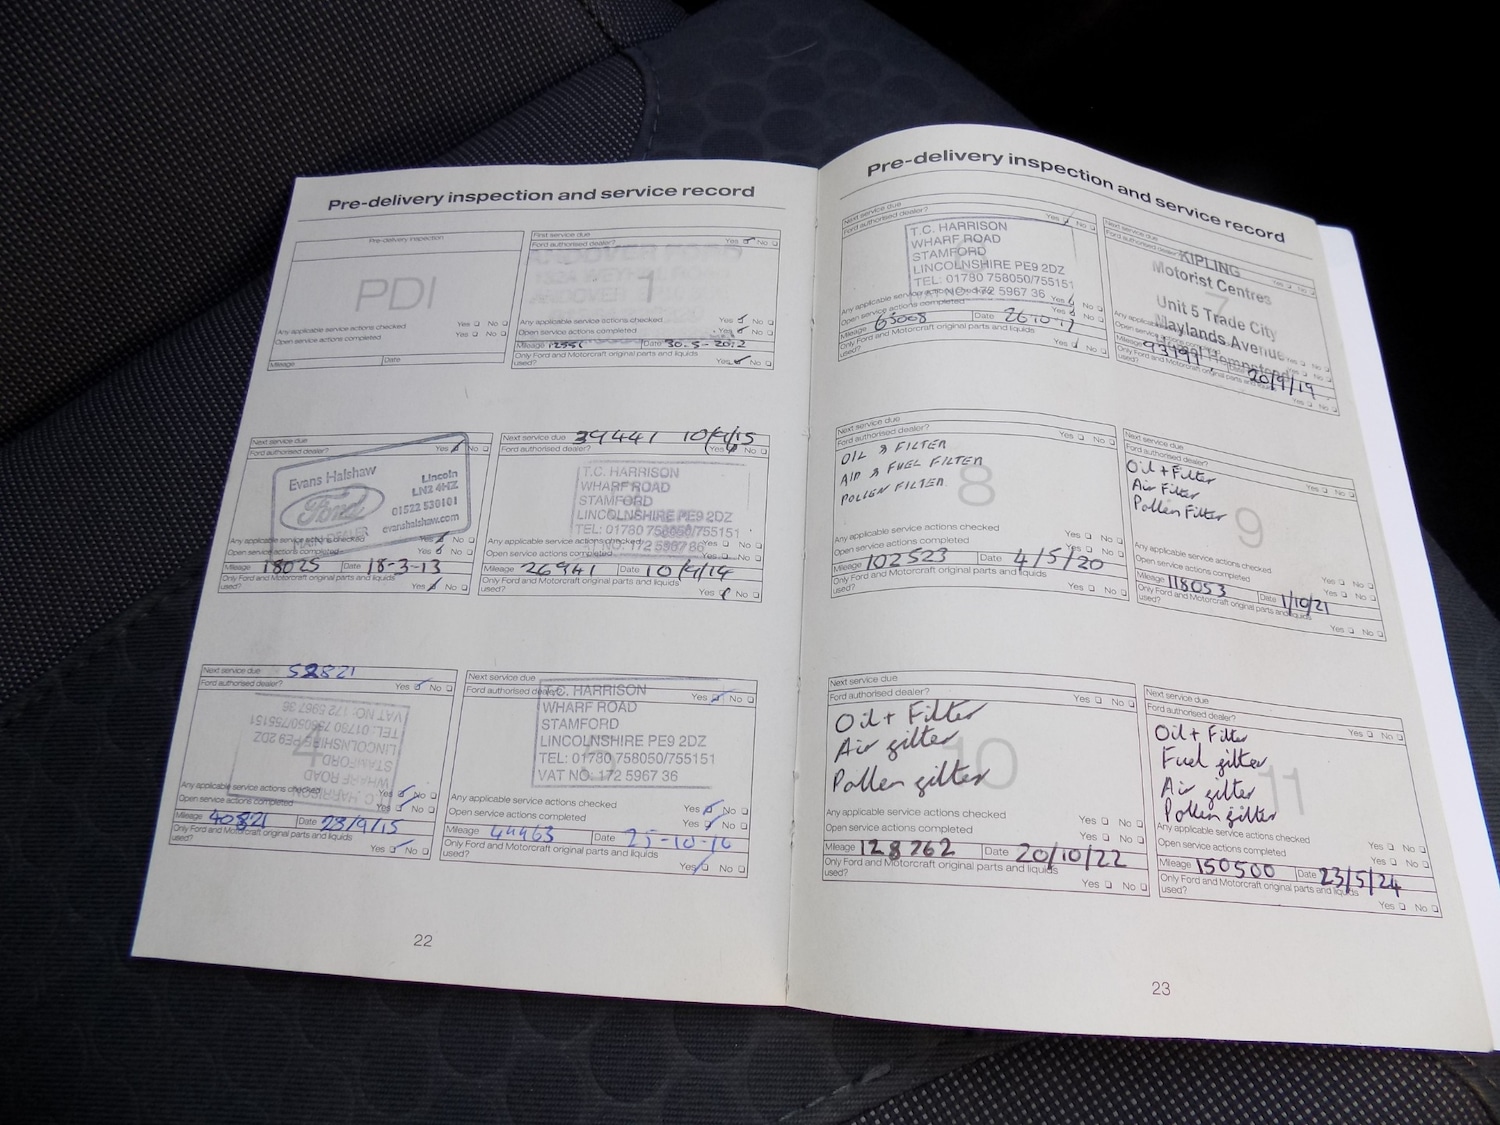 Pre-delivery inspection and service record
Pre-delivery inspection
PDI
Any applicable service actions checked Yes No
Open service actions completed Yes No
Mileage Date
First service due
Ford authorised dealer? Yes No
1
Any applicable service actions checked Yes No
Open service actions completed Yes No
Mileage Date 30.5-2012
Only Ford and Motorcraft original parts and liquids
used? Yes No
Next service due
Ford authorised dealer? Yes No
Evans Halshaw
Ford
MAIN DEALER
Lincoln
LN2 4HZ
01522 530101
evanshalshaw.com
Any applicable service actions checked
Open service actions completed Yes No
Mileage 18025 Date 18-3-13
Only Ford and Motorcraft original parts and liquids
used? Yes No
Next service due 39441 10/9/15
Ford authorised dealer? Yes
T.C. HARRISON
WHARF ROAD
STAMFORD
LINCOLNSHIRE PE9 2DZ
TEL: 01780 758050/755151
VAT NO. 172 5967 36
Any applicable service actions checked Yes No
Open service actions completed Yes No
Mileage 26941 Date 10/9/14
Only Ford and Motorcraft original parts and liquids
used? Yes No
Next service due 52821
Ford authorised dealer? Yes No
4
T.C. HARRISON
WHARF ROAD
STAMFORD
LINCOLNSHIRE PE9 2DZ
TEL: 01780 758050/755151
VAT NO: 172 5967 36
Any applicable service actions checked Yes No
Open service actions completed Yes No
Mileage 40821 Date 23/9/15
Only Ford and Motorcraft original parts and liquids
used? Yes No
Next service due
Ford authorised dealer? Yes No
T.C. HARRISON
WHARF ROAD
STAMFORD
LINCOLNSHIRE PE9 2DZ
TEL: 01780 758050/755151
VAT NO. 172 5967 36
5
Any applicable service actions checked Yes No
Open service actions completed Yes No
Mileage 49463 Date 25-10-16
Only Ford and Motorcraft original parts and liquids
used? Yes No
22
Pre-delivery inspection and service record
Next service due
Ford authorised dealer? Yes No
T.C. HARRISON
WHARF ROAD
STAMFORD
LINCOLNSHIRE PE9 2DZ
TEL: 01780 758050/755151
VAT NO. 172 5967 36
Any applicable service actions checked Yes No
Open service actions completed Yes No
Mileage 63008 Date 26-10-17
Only Ford and Motorcraft original parts and liquids
used? Yes No
Next service due
Ford authorised dealer? Yes No
KIPLING
Motorist Centres
7
Unit 5 Trade City
Maylands Avenue
Hemel Hempstead
Any applicable service actions checked Yes No
Open service actions completed Yes No
Mileage Date 20/9/19
Only Ford and Motorcraft original parts and liquids
used? Yes No
Next service due
Ford authorised dealer? Yes No
OIL & FILTER
AIR & FUEL FILTER
POLLEN FILTER
8
Any applicable service actions checked Yes No
Open service actions completed Yes No
Mileage 102523 Date 4/5/20
Only Ford and Motorcraft original parts and liquids
used? Yes No
Next service due
Ford authorised dealer? Yes No
Oil + Filter
Air Filter
Pollen Filter
9
Any applicable service actions checked
Open service actions completed Yes No
Mileage 118053 Date 1/10/21 Yes No
Only Ford and Motorcraft original parts and liquids
used? Yes No
Next service due
Ford authorised dealer? Yes No
Oil + Filter
Air filter
Pollen filter
10
Any applicable service actions checked Yes No
Open service actions completed Yes No
Mileage 128762 Date 20/10/22
Only Ford and Motorcraft original parts and liquids
used? Yes No
Next service due
Ford authorised dealer? Yes No
Oil + Filter
Fuel filter
Air filter
Pollen filter
11
Any applicable service actions checked Yes No
Open service actions completed Yes No
Mileage 150500 Date 23/5/24
Only Ford and Motorcraft original parts and liquids
used? Yes No
23